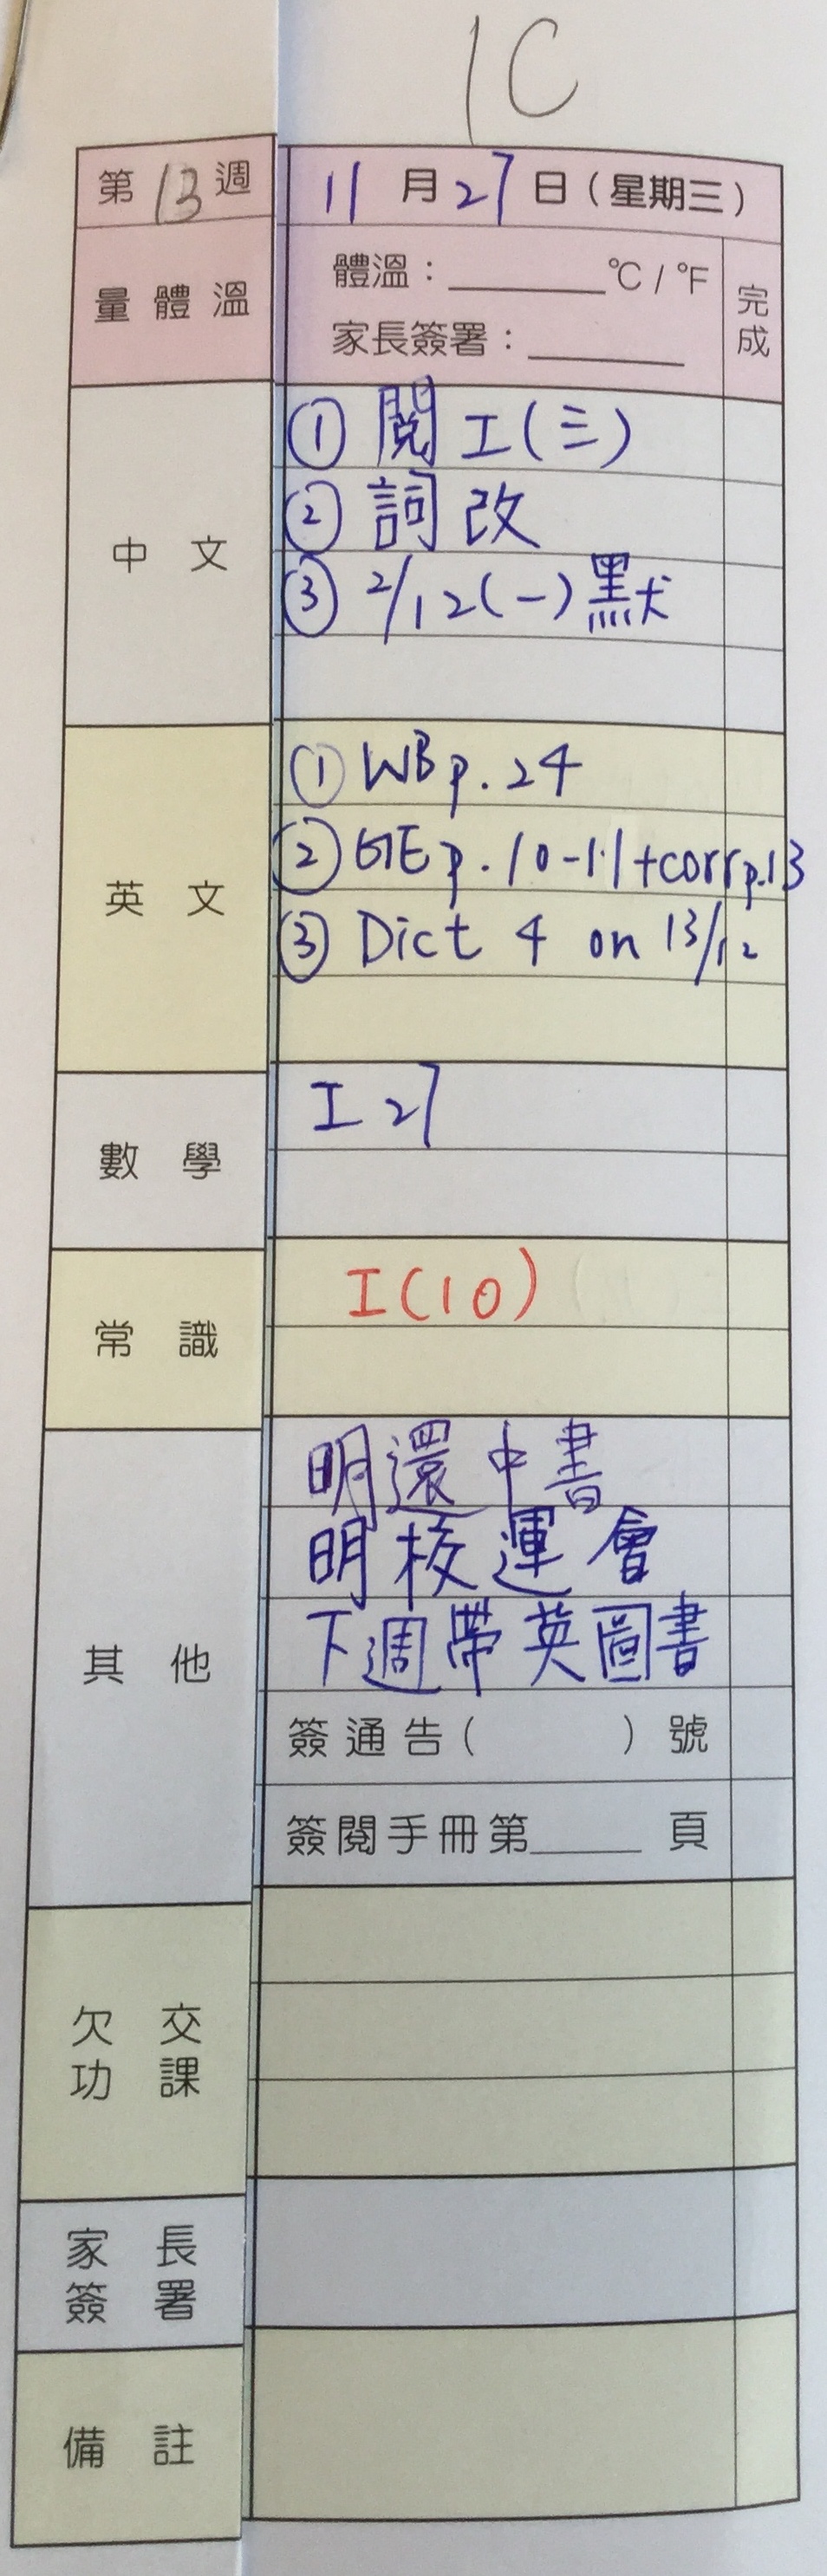 1C
第13週 11月27日(星期三)
量體溫 體溫：______℃/℉ 完成
家長簽署：______
中文 ① 閱工(三)
② 詞改
③ 2/12(一)默
英文 ① WB p.24
② GE p.10-11+corr p.13
③ Dict 4 on 13/12
數學 工27
常識 工(10)
其他 明還中書
明校運會
下週帶英圖書
簽通告( )號
簽閱手冊第____頁
欠交功課
家長簽署
備註